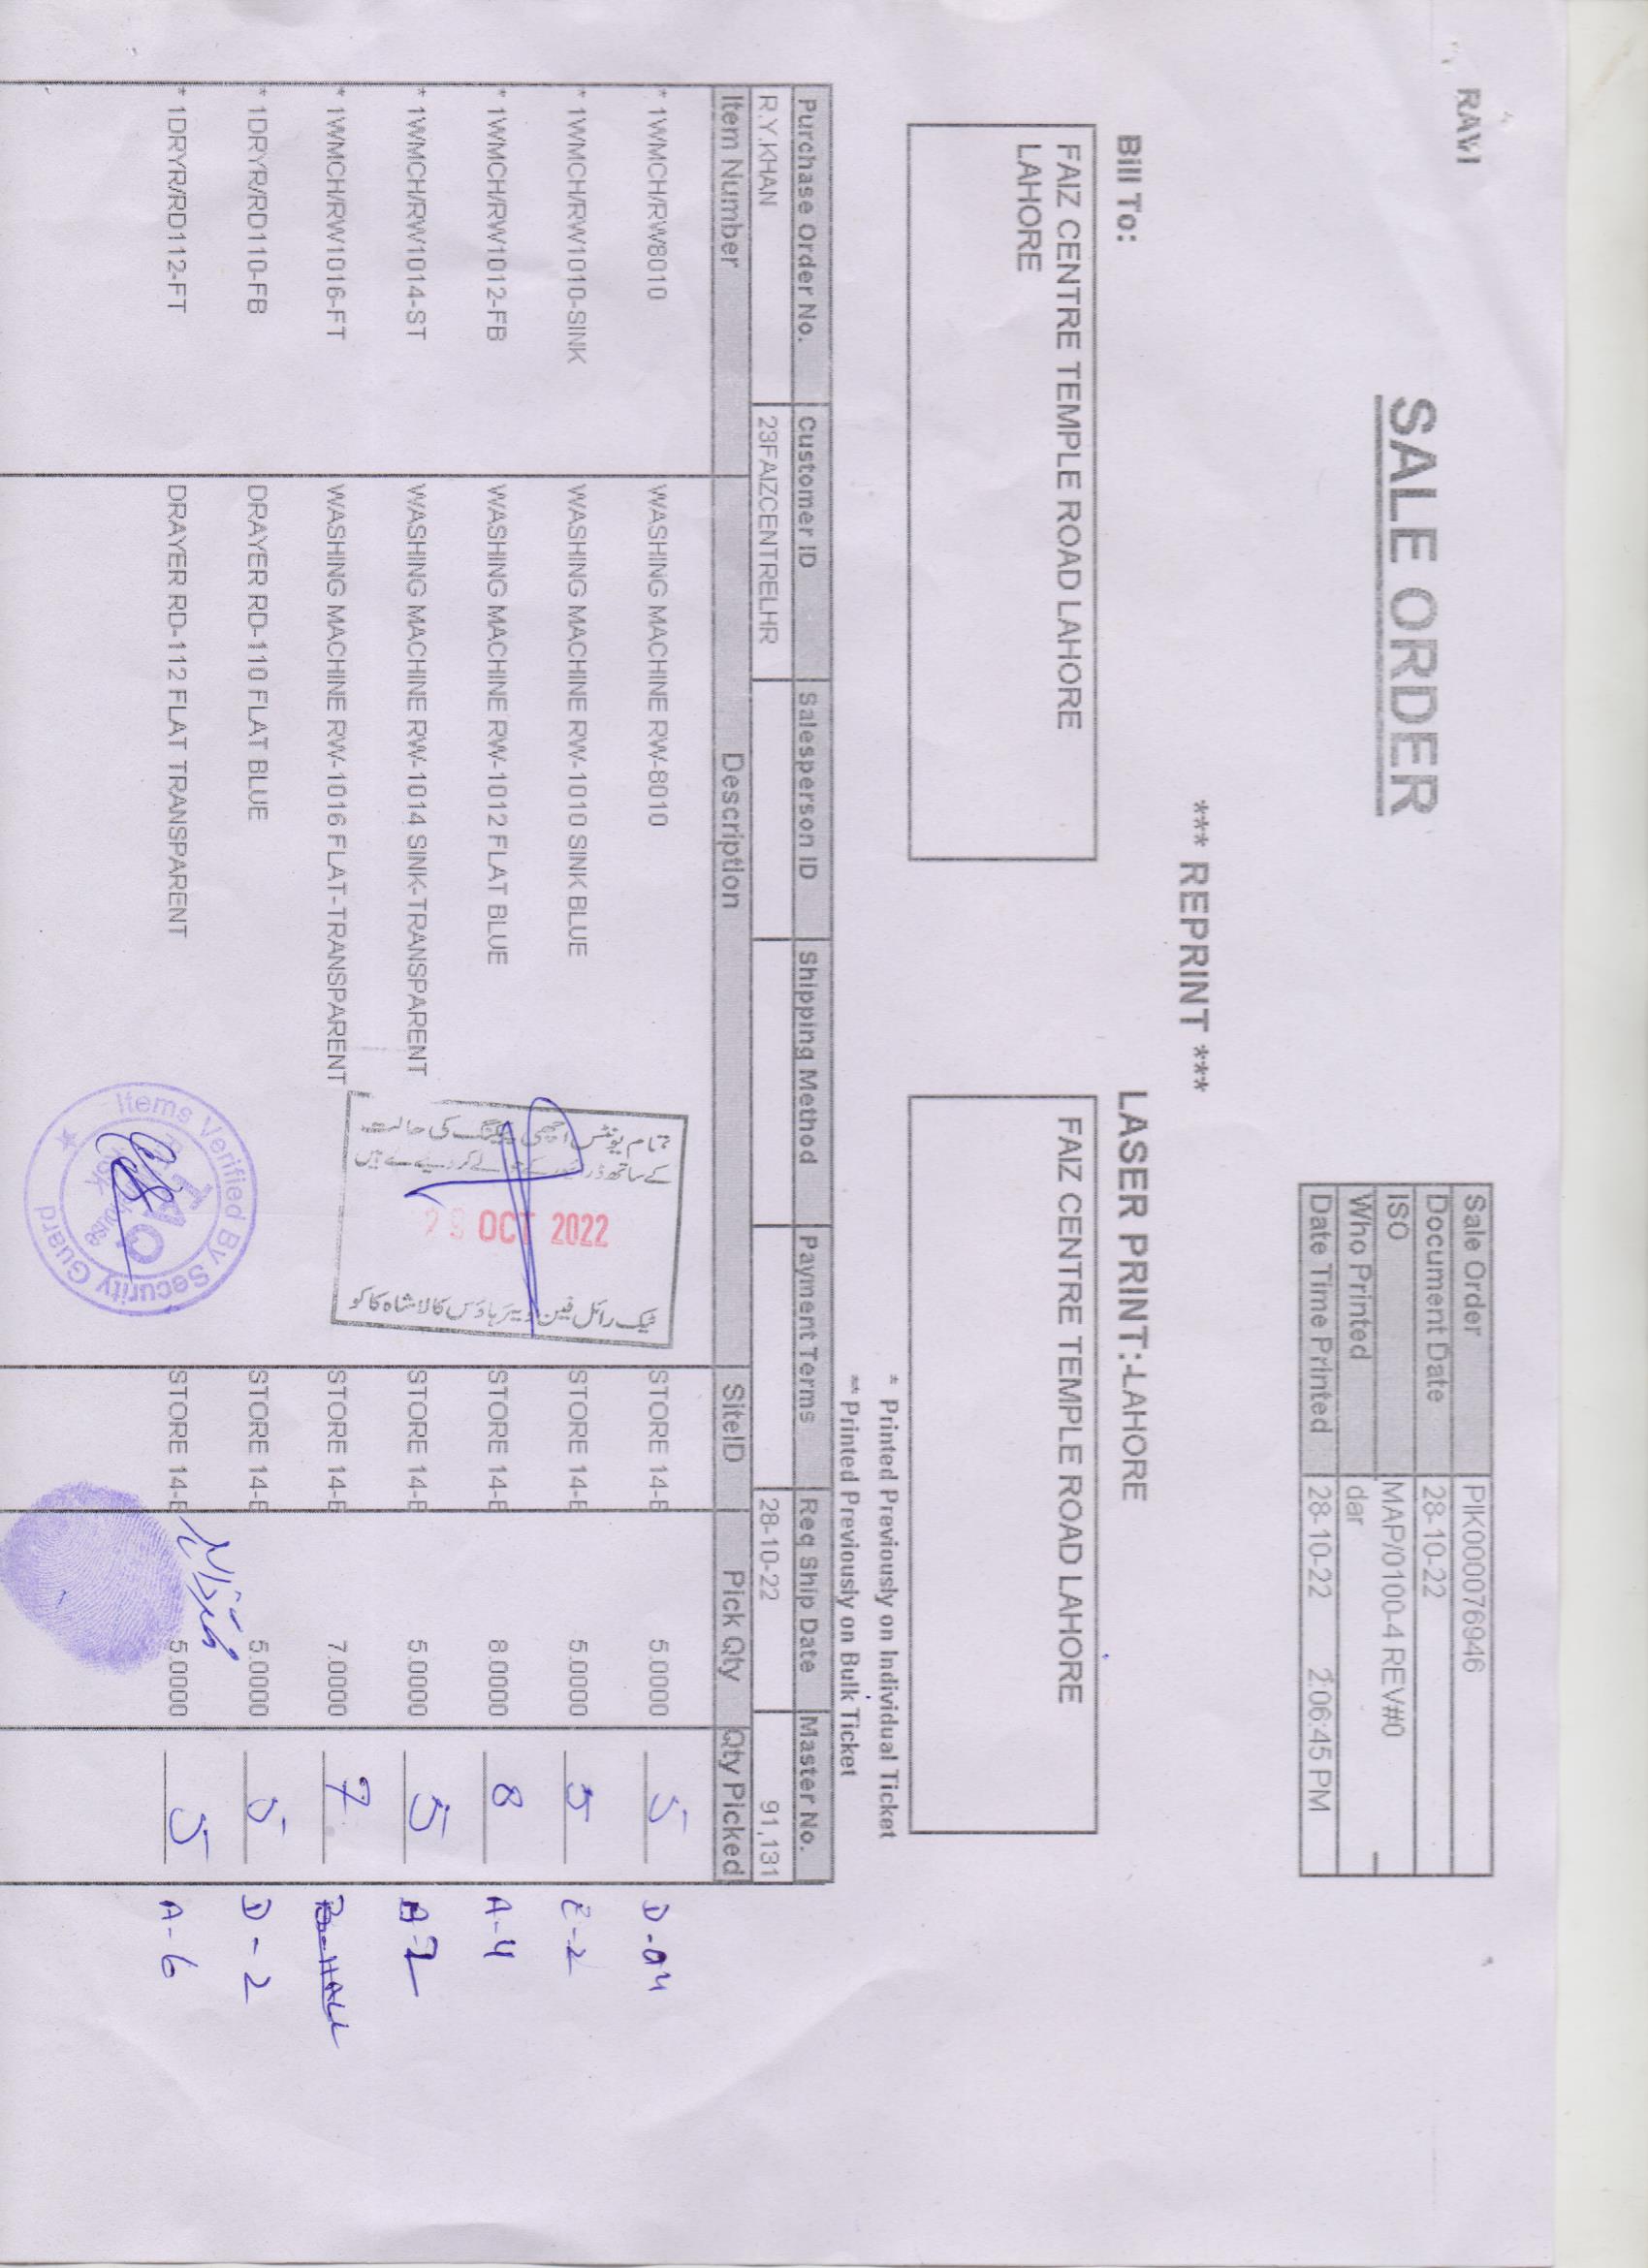 RAVI
SALE ORDER
Sale Order PIK000076946
Document Date 28-10-22
ISO MAP/0100-4 REV#0
Who Printed dar
Date Time Printed 28-10-22 2:06:45 PM
*** REPRINT ***
Bill To:
LASER PRINT:-LAHORE
FAIZ CENTRE TEMPLE ROAD LAHORE
LAHORE
FAIZ CENTRE TEMPLE ROAD LAHORE
* Printed Previously on Individual Ticket
** Printed Previously on Bulk Ticket
Purchase Order No. Customer ID Salesperson ID Shipping Method Payment Terms Req Ship Date Master No.
R.Y.KHAN 23FAIZCENTRELHR 28-10-22 91,131
Item Number Description SiteID Pick Qty Qty Picked
* 1WMCH/RW8010 WASHING MACHINE RW-8010 STORE 14-E 5.0000 5 D-04
* 1WMCH/RW1010-SINK WASHING MACHINE RW-1010 SINK BLUE STORE 14-E 5.0000 5 E-2
* 1WMCH/RW1012-FB WASHING MACHINE RW-1012 FLAT BLUE STORE 14-E 8.0000 8 A-4
* 1WMCH/RW1014-ST WASHING MACHINE RW-1014 SINK-TRANSPARENT STORE 14-E 5.0000 5
* 1WMCH/RW1016-FT WASHING MACHINE RW-1016 FLAT-TRANSPARENT STORE 14-E 7.0000 7 B-HALL
* 1DRYR/RD110-FB DRAYER RD-110 FLAT BLUE STORE 14-E 5.0000 5 D-2
* 1DRYR/RD112-FT DRAYER RD-112 FLAT TRANSPARENT STORE 14-E 5.0000 5 A-6
OCT 2022
Items Verified By Security Guard
TAQ